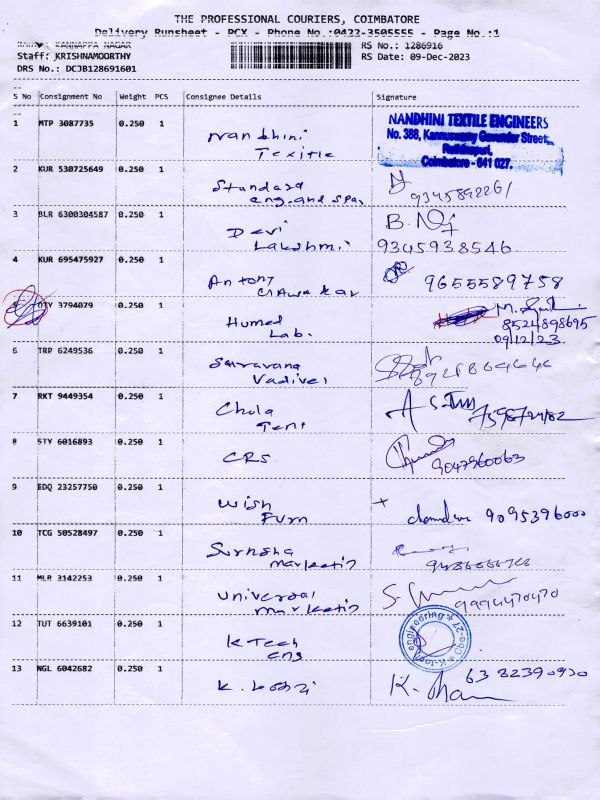 THE PROFESSIONAL COURIERS, COIMBATORE
Delivery Runsheet - PCX - Phone No.:0422-3505555 - Page No.:1
KANNAPPA NAGAR RS No.: 1286916
Staff: KRISHNAMOORTHY RS Date: 09-Dec-2023
DRS No.: DCJB128691601
S No Consignment No Weight PCS Consignee Details Signature
1 MTP 3087735 0.250 1 Nandhini
Texitle
NANDHINI TEXTILE ENGINEERS
No. 388, Kannuswamy Gounder Street,
Coimbatore - 641 027.
2 KUR 530725649 0.250 1 Standard
eng. and spar
9345892261
3 BLR 6300304587 0.250 1 Devi
Lakshmi
B.
9345938546
4 KUR 695475927 0.250 1 Antony
9655589758
5 OTY 3794079 0.250 1 Humed
Lab.
M.
8524898695
09/12/23
6 TRP 6249536 0.250 1 Saravana
Vadivel
7 RKT 9449354 0.250 1 Chola
8 STY 6016893 0.250 1 CRS
9047960063
9 EDQ 23257750 0.250 1 Wish
Furn
9095396000
10 TCG 50528497 0.250 1
marketin
11 MLR 3142253 0.250 1 Universal
marketin
9994470470
12 TUT 6639101 0.250 1 K Tech
eng
K-tech engineering
13 NGL 6042682 0.250 1
K.